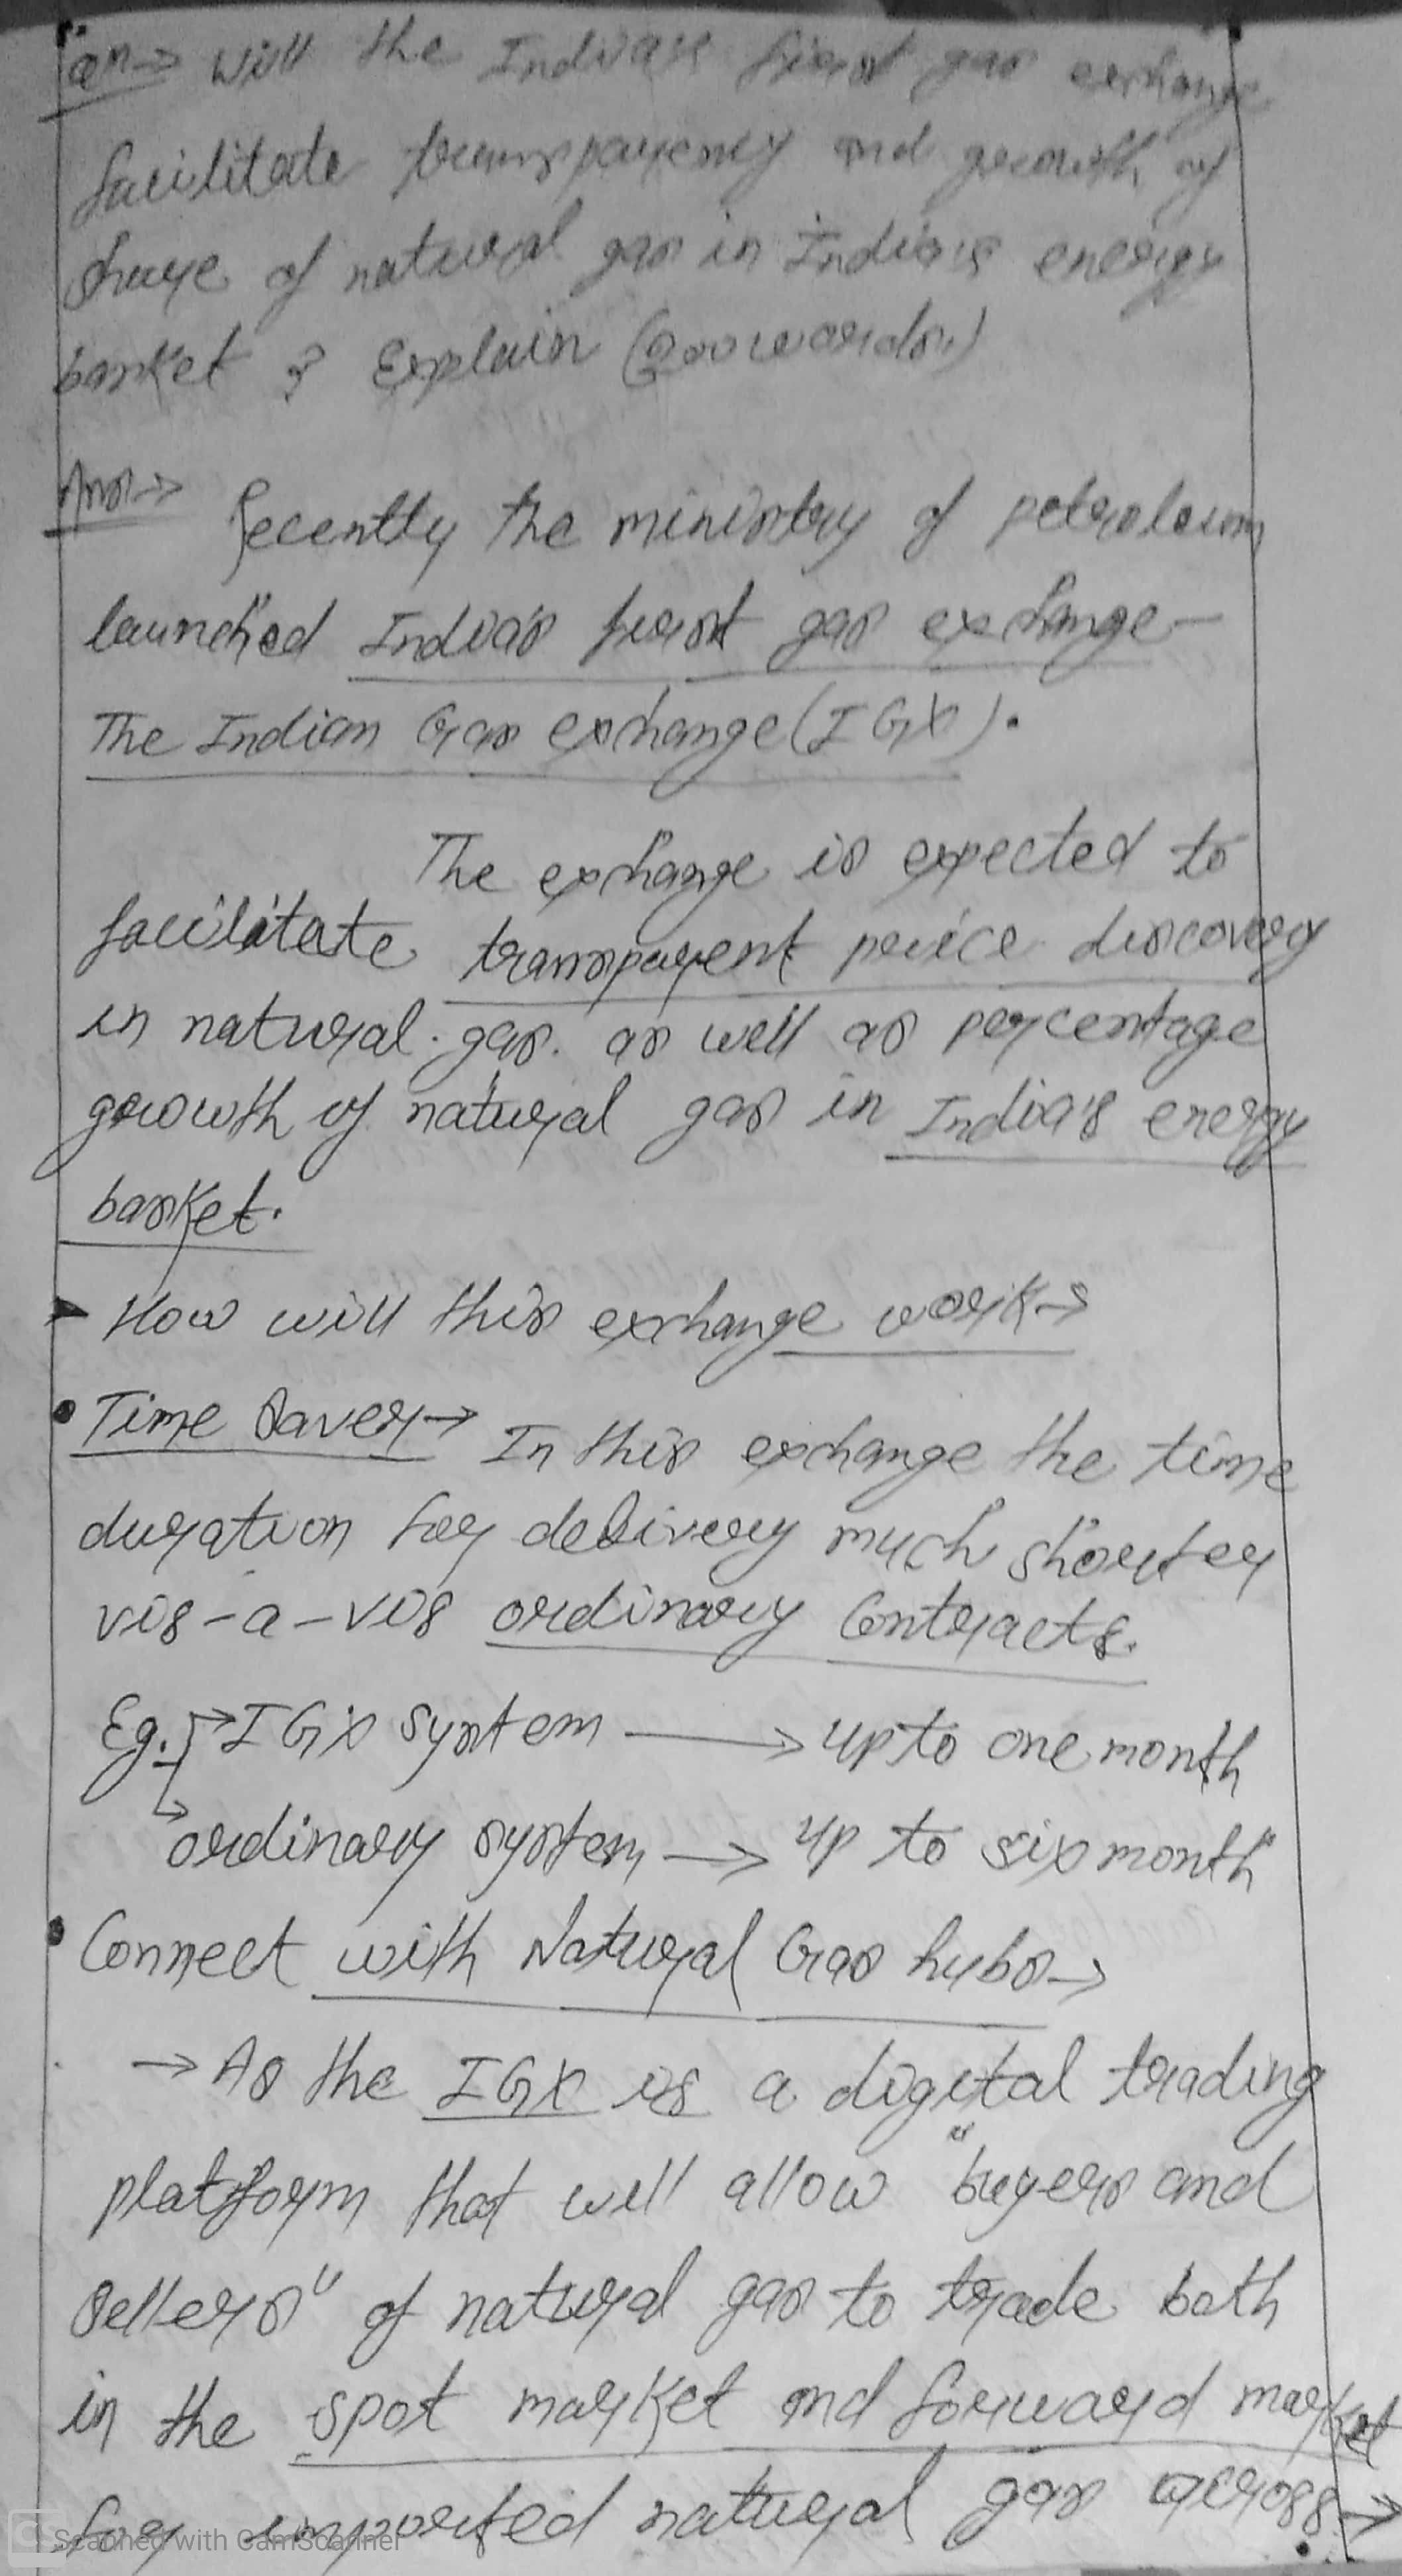 Qn→ Will the India's first gas exchange
facilitate transparency and growth of
share of natural gas in India's energy
basket ? Explain (200 words.)
Ans→ Recently the ministry of petroleum
launched India's first gas exchange-
The Indian Gas exchange (IGX).
The exchange is expected to
facilitate transparent price discovery
in natural gas. as well as percentage
growth of natural gas in India's energy
basket.
➤ How will this exchange work→
• Time Saver→ In this exchange the time
duration for delivery much shorter
vis-a-vis ordinary Contracts.
Eg. → IGX system → up to one month
→ ordinary system → up to six month
• Connect with Natural Gas hubs→
→ As the IGX is a digital trading
platform that will allow "buyers and
Sellers" of natural gas to trade both
in the spot market and forward market
for imported natural gas across →
Scanned with CamScanner